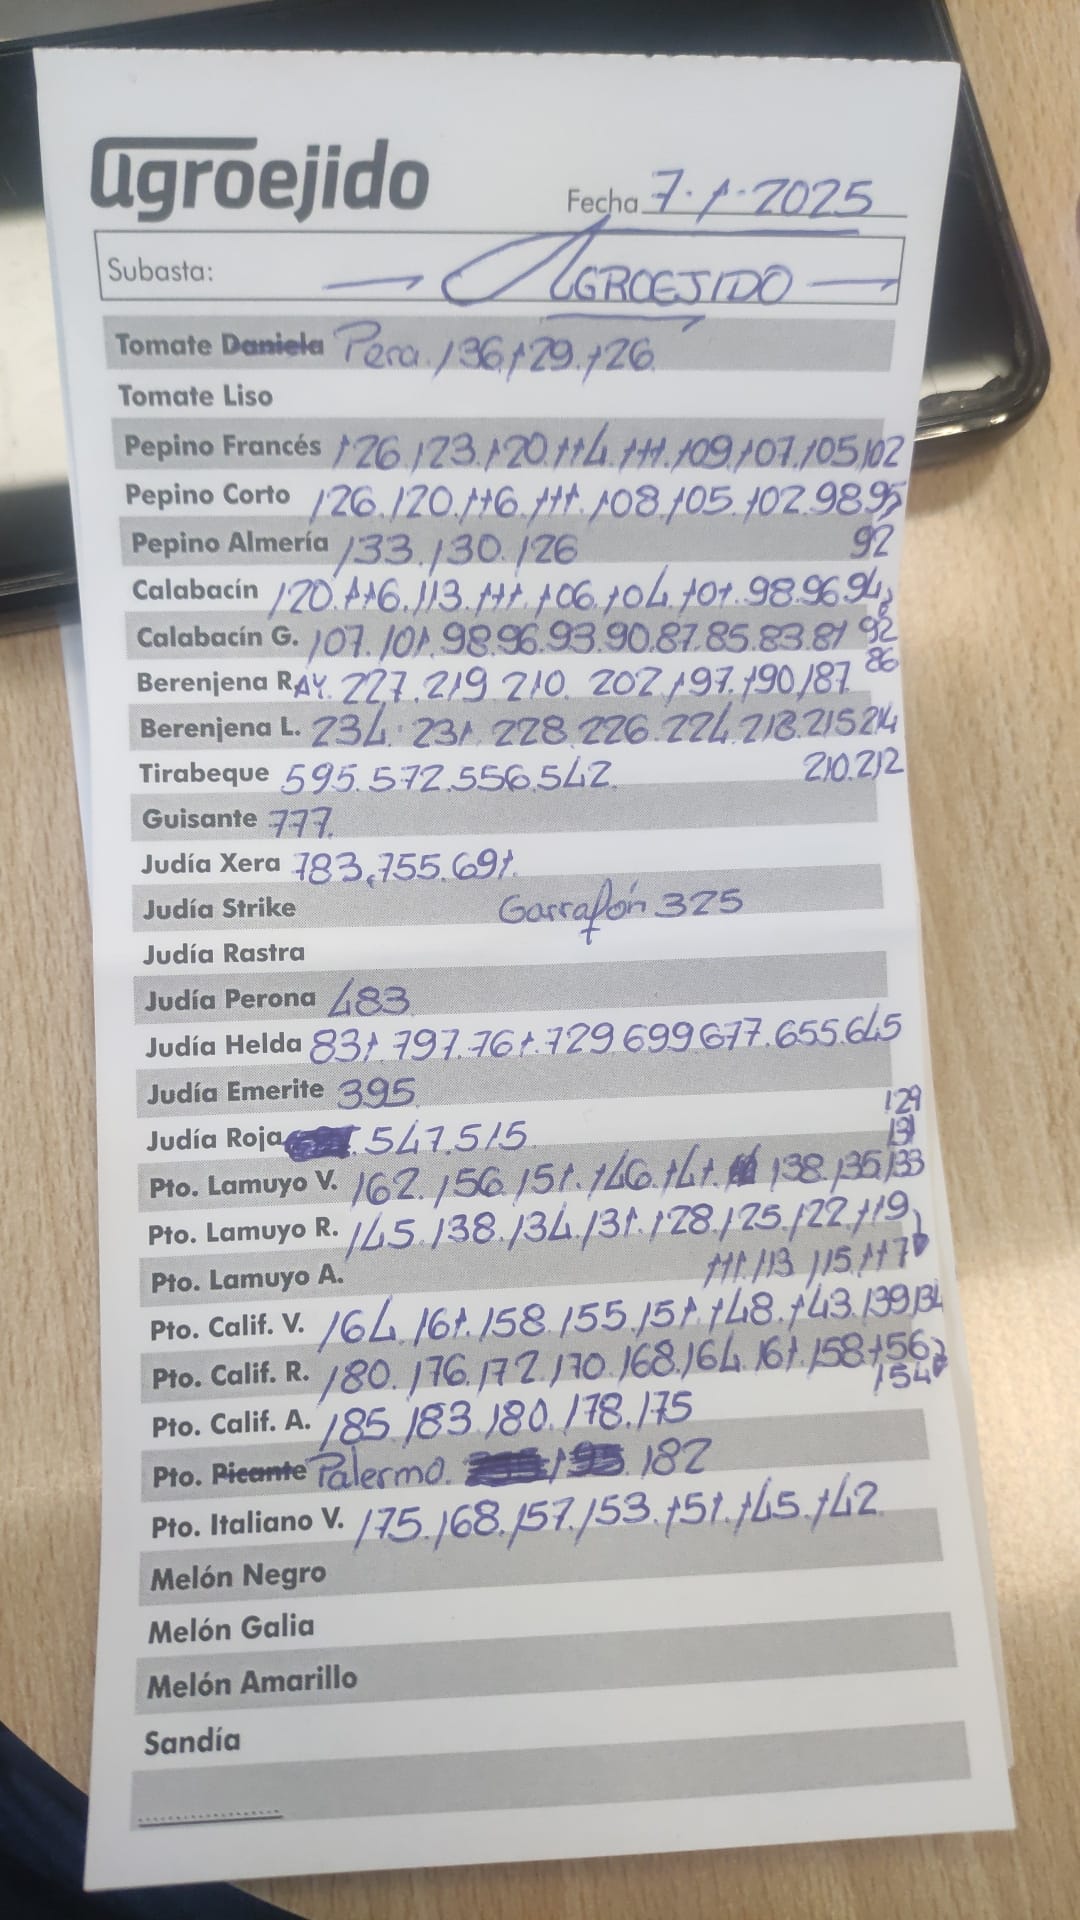 agroejido
Fecha 7-1-2025
Subasta: — AGROEJIDO —
Tomate Daniela Pera. 136.129.126.
Tomate Liso
Pepino Francés 126.123.120.114.111.109.107.105.102
Pepino Corto 126.120.116.111.108.105.102.98.95
92
Pepino Almería 133.130.126
Calabacín 120.116.113.111.106.104.101.98.96.94
92
Calabacín G. 107.101.98.96.93.90.87.85.83.81
86
Berenjena RAY. 227.219.210.202.197.190.187
Berenjena L. 234.231.228.226.224.218.215.214
210.212
Tirabeque 595.572.556.542.
Guisante 777.
Judía Xera 783.755.691.
Judía Strike Garrafón 325
Judía Rastra
Judía Perona 483
Judía Helda 831.797.761.729.699.677.655.645
Judía Emerite 395
Judía Roja 547.515
129
131
Pto. Lamuyo V. 162.156.151.146.141. 138.135.133
Pto. Lamuyo R. 145.138.134.131.128.125.122.119
111.113.115.117
Pto. Lamuyo A.
Pto. Calif. V. 164.161.158.155.151.148.143.139.134
Pto. Calif. R. 180.176.172.170.168.164.161.158.156
154
Pto. Calif. A. 185.183.180.178.175
Pto. Picante Palermo. 182
Pto. Italiano V. 175.168.157.153.151.145.142
Melón Negro
Melón Galia
Melón Amarillo
Sandía